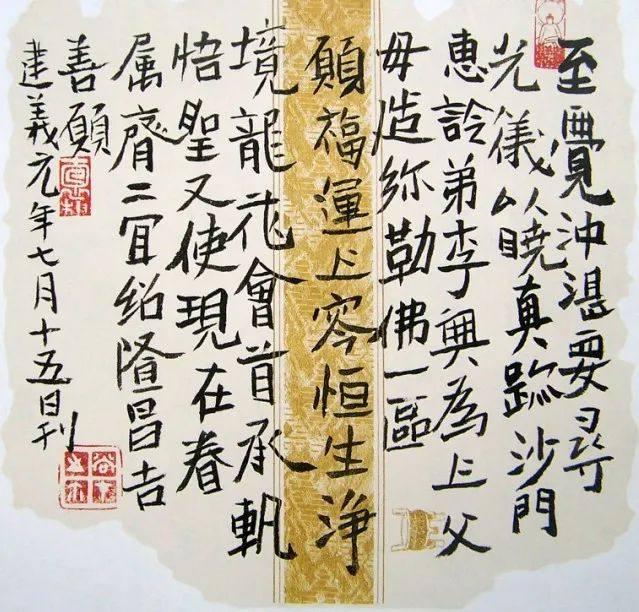 至覺沖湛要尋
光儀以曉真跡沙門
惠詮弟李興為上父
母造弥勒佛一區
願福運上容恒生淨
境龍花會首承軌
悟聖又使現在眷
属膺二宜紹隆昌吉
善願
建義元年七月十五日刊